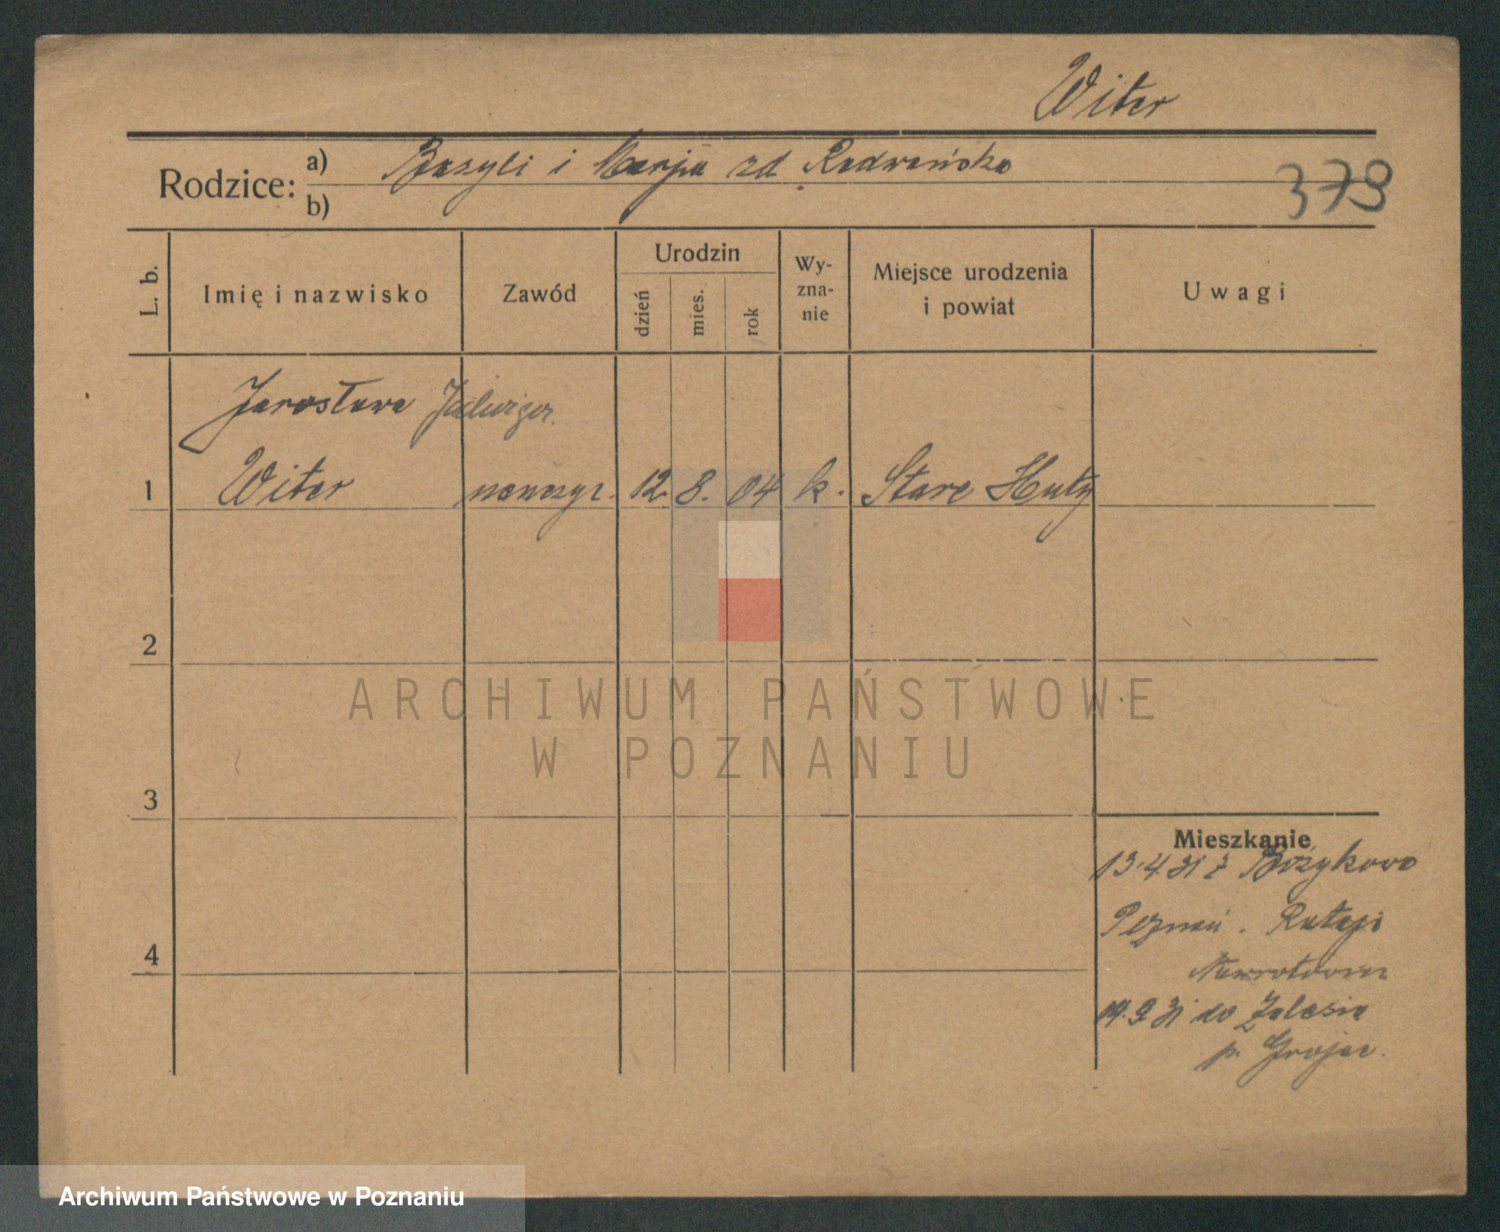 Witer
Rodzice: a) Bazyli i Marja zd Radwańska
b)
379
L. b.
Imię i nazwisko
Zawód
Urodzin
dzień
mies.
rok
Wy-
zna-
nie
Miejsce urodzenia
i powiat
Uwagi
Jarosława Jadwiga
1 Witer nauczyc. 12. 8. 04 k. Stare Huty
2
3
4
ARCHIWUM PAŃSTWOWE
W POZNANIU
Mieszkanie
13.4.31 z Bożykowa
Poznań. Rataje
19.9.31 do Zalesia
p. Grojec.
Archiwum Państwowe w Poznaniu